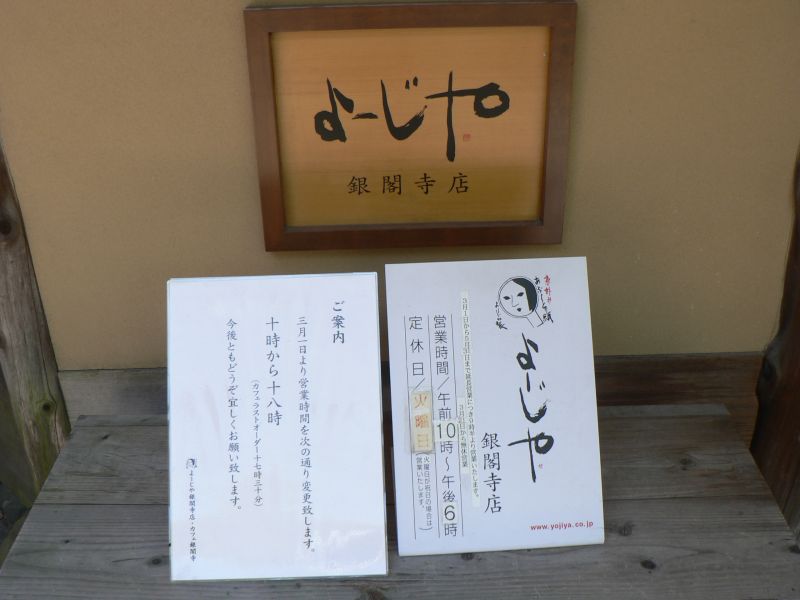 よーじや
銀閣寺店
ご案内
三月一日より営業時間を次の通り変更致します。
十時から十八時
(カフェラストオーダー十七時三十分)
今後ともどうぞ宜しくお願い致します。
よーじや銀閣寺店・カフェ銀閣寺
あぶらとり紙
よーじや
銀閣寺店
営業時間/午前10時〜午後6時
定休日/火曜日(火曜日が祝日の場合は営業いたします。)
www.yojiya.co.jp